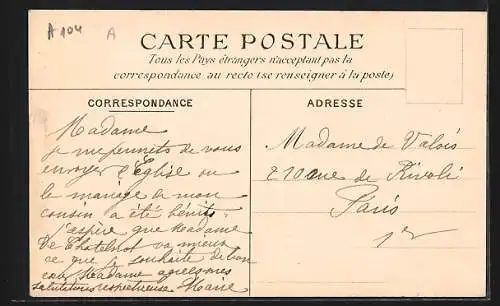 A 104
A
CARTE POSTALE
Tous les Pays étrangers n'acceptant pas la
correspondance au recto (se renseigner à la poste)
CORRESPONDANCE
Madame
je me permets de vous
envoyer l'Eglise ou
le mariage de mon
cousin a été bénit.
j'aspère que Madame
De Chatelnot va mieux
ce que je souhaite de bon
cœur Madame agréer mes
salutations respectueuse Marie
ADRESSE
Madame de Valois
210 rue de Rivoli
Paris
1er